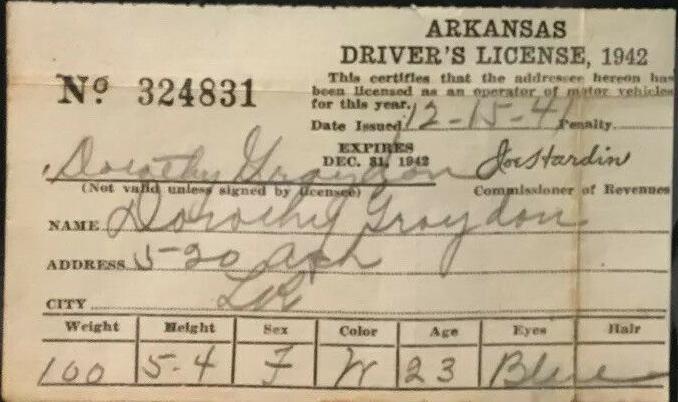 ARKANSAS
DRIVER'S LICENSE, 1942
Nº 324831
This certifies that the addressee hereon has
been licensed as an operator of motor vehicles
for this year.
Date Issued 12-15-41 Penalty
EXPIRES
DEC. 31, 1942
Dorothy Graydon Joe Hardin
(Not valid unless signed by licensee) Commissioner of Revenues
NAME Dorothy Graydon
ADDRESS 520 Ash
CITY
Weight Height Sex Color Age Eyes Hair
100 5-4 F W 23 Blue